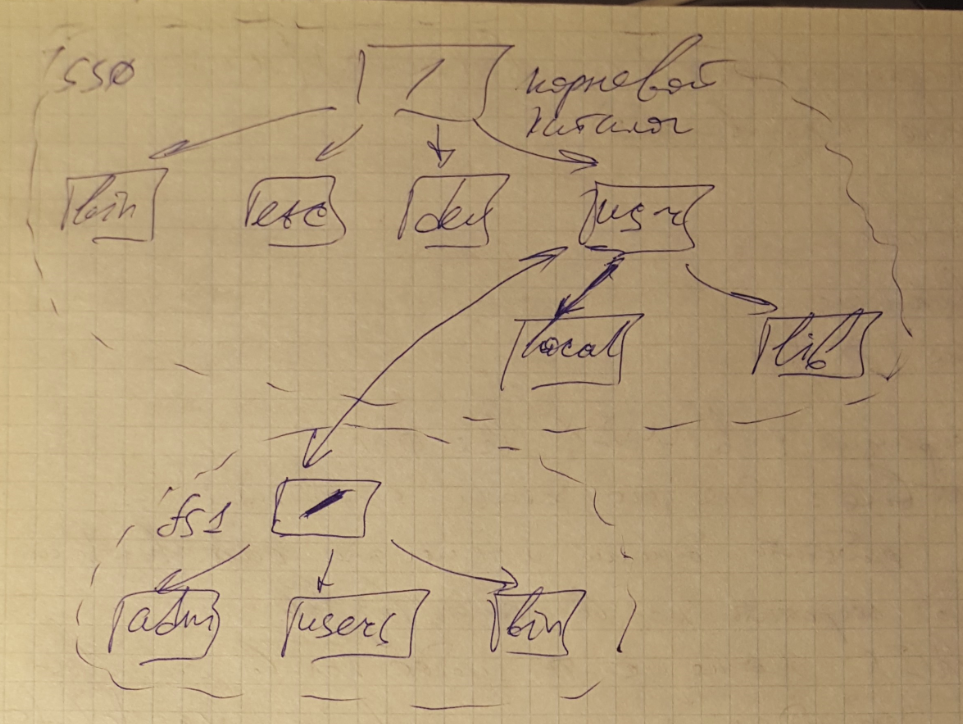 fs0
/
корневой
каталог
bin
etc
dev
usr
local
lib
fs1
/
adm
users
bin